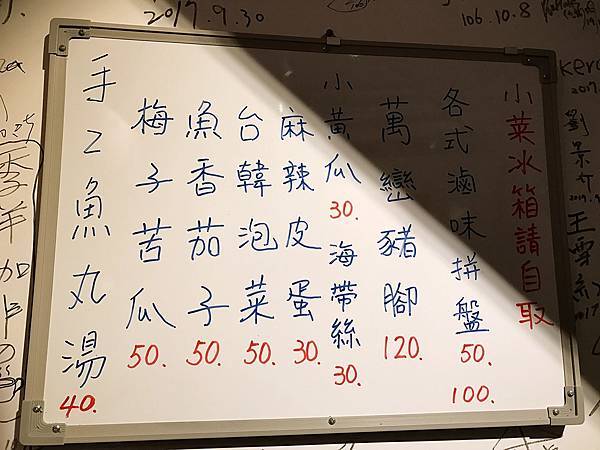 2017.9.30
106.10.8
小菜冰箱請自取
各式滷味拼盤 50. 100.
萬巒豬腳 120.
小黃瓜 30.
海帶絲 30.
麻辣皮蛋 30.
台韓泡菜 50.
魚香茄子 50.
梅子苦瓜 50.
手工魚丸湯 40.
劉景介